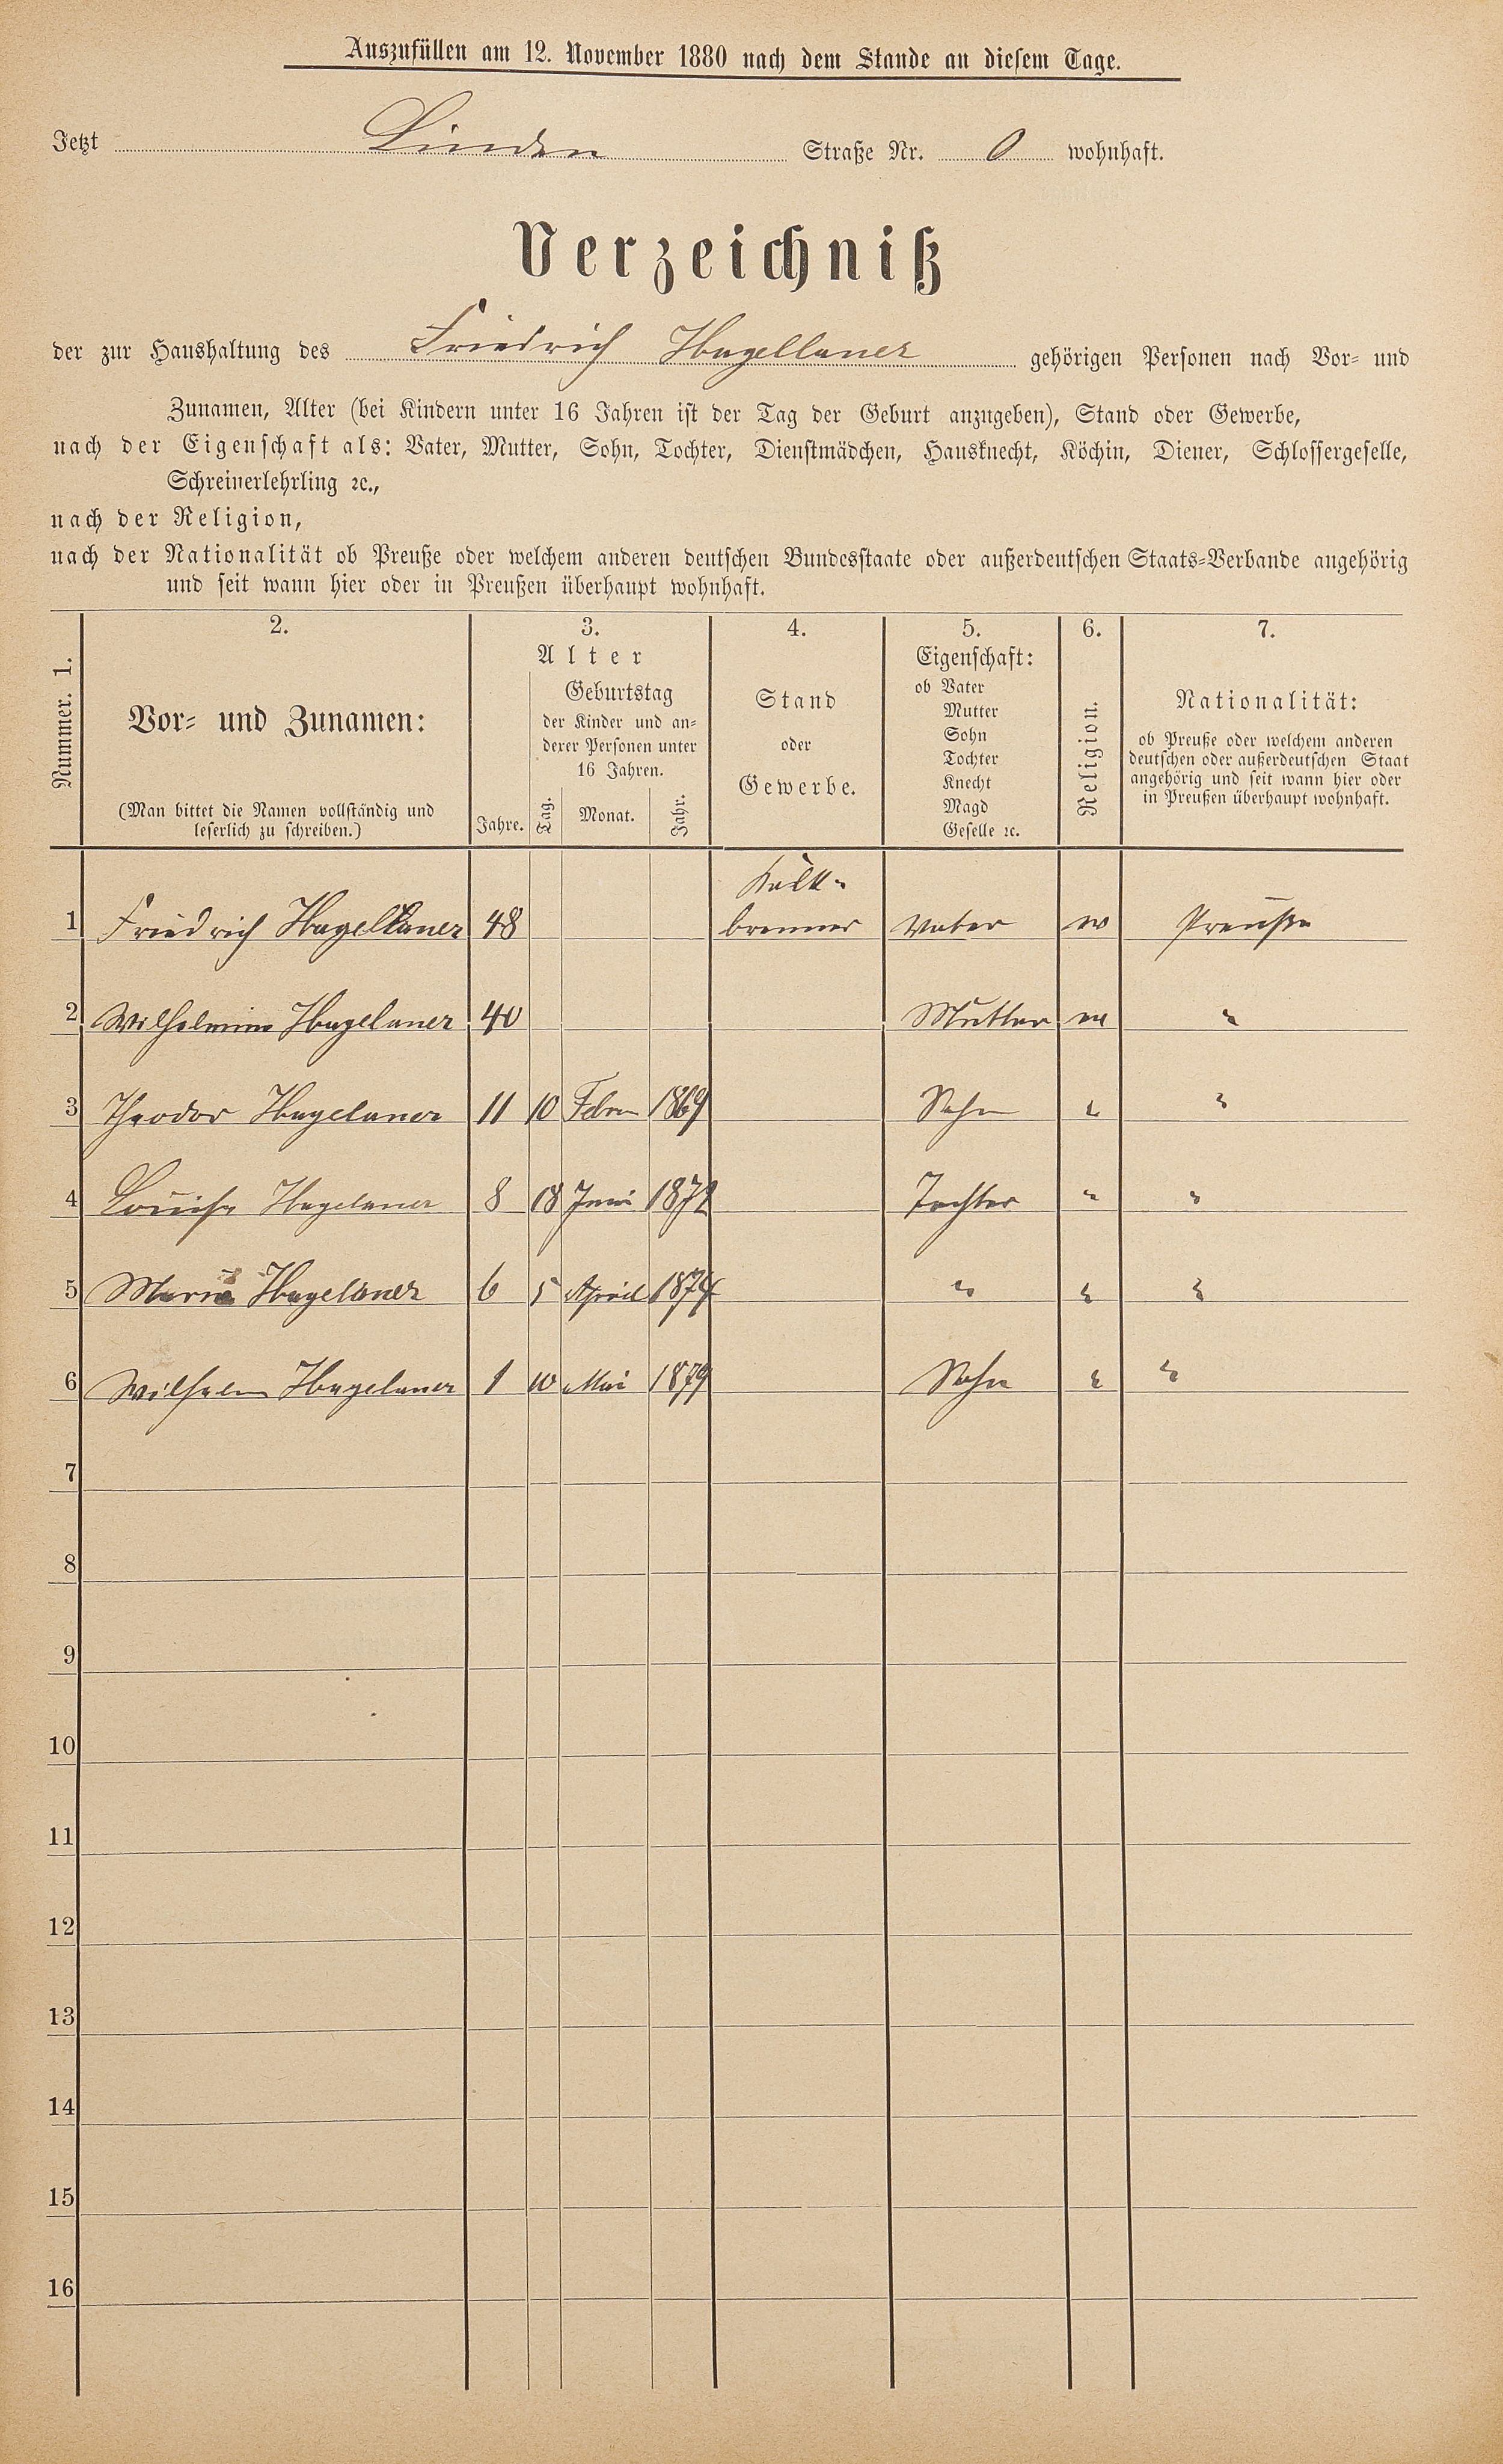 Auszufüllen am 12. November 1880 nach dem Stande an diesem Tage.
Jetzt Linden Straße Nr. 0 wohnhaft.
Verzeichniß
der zur Haushaltung des Friedrich Hagellaner gehörigen Personen nach Vor- und
Zunamen, Alter (bei Kindern unter 16 Jahren ist der Tag der Geburt anzugeben), Stand oder Gewerbe,
nach der Eigenschaft als: Vater, Mutter, Sohn, Tochter, Dienstmädchen, Hausknecht, Köchin, Diener, Schlossergeselle,
Schreinerlehrling ꝛc.,
nach der Religion,
nach der Nationalität ob Preuße oder welchem anderen deutschen Bundesstaate oder außerdeutschen Staats-Verbande angehörig
und seit wann hier oder in Preußen überhaupt wohnhaft.
Nummer. 1.
2.
Vor- und Zunamen:
(Man bittet die Namen vollständig und
leserlich zu schreiben.)
3.
Alter
Jahre.
Geburtstag
der Kinder und an-
derer Personen unter
16 Jahren.
Tag. Monat. Jahr.
4.
Stand
oder
Gewerbe.
5.
Eigenschaft:
ob Vater
Mutter
Sohn
Tochter
Knecht
Magd
Geselle ꝛc.
6.
Religion.
7.
Nationalität:
ob Preuße oder welchem anderen
deutschen oder außerdeutschen Staat
angehörig und seit wann hier oder
in Preußen überhaupt wohnhaft.
Kalk-
1 Friedrich Hagellaner 48 brenner Vater Preuße
2 Wilhelmine Hagelaner 40 Mutter "
3 Theodor Hagelaner 11 10 Febru 1869 Sohn " "
4 Louise Hagelaner 8 18 Juni 1872 Tochter " "
5 Marie Hagelaner 6 5 April 1874 " " "
6 Wilhelm Hagelaner 1 10 Mai 1879 Sohn " "
7
8
9
10
11
12
13
14
15
16